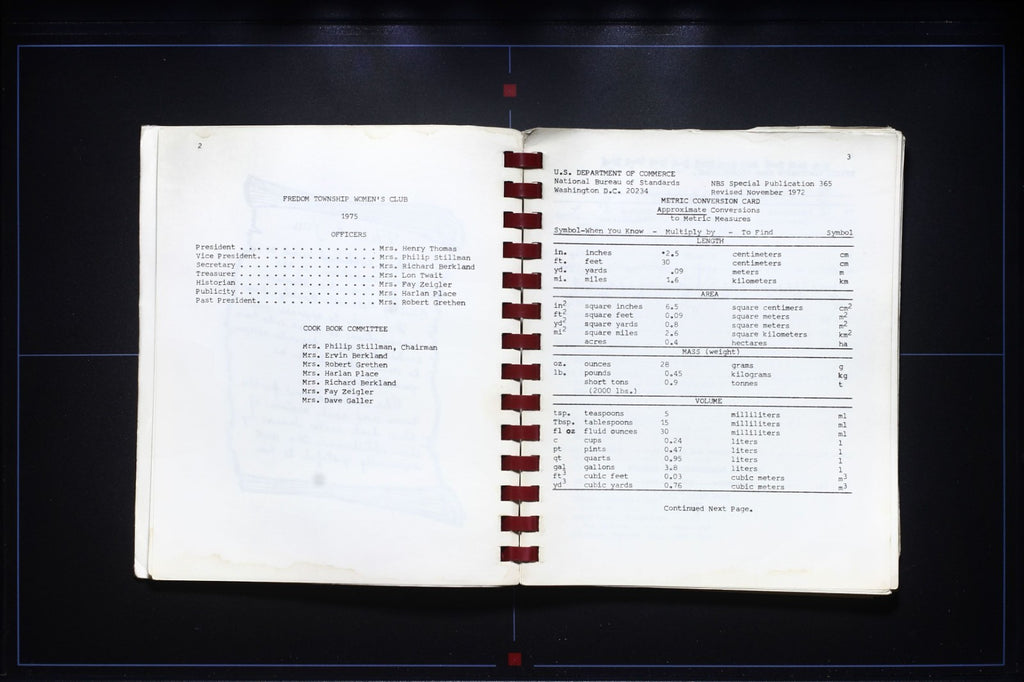 2
FREDOM TOWNSHIP WOMEN'S CLUB
1975
OFFICERS
President . . . . . . . . . . . . . . . . Mrs. Henry Thomas
Vice President. . . . . . . . . . . . . . Mrs. Philip Stillman
Secretary . . . . . . . . . . . . . . . . Mrs. Richard Berkland
Treasurer . . . . . . . . . . . . . . . . Mrs. Lon Twait
Historian . . . . . . . . . . . . . . . . Mrs. Fay Zeigler
Publicity . . . . . . . . . . . . . . . . Mrs. Harlan Place
Past President. . . . . . . . . . . . . . Mrs. Robert Grethen
COOK BOOK COMMITTEE
Mrs. Philip Stillman, Chairman
Mrs. Ervin Berkland
Mrs. Robert Grethen
Mrs. Harlan Place
Mrs. Richard Berkland
Mrs. Fay Zeigler
Mrs. Dave Galler
3
U.S. DEPARTMENT OF COMMERCE
National Bureau of Standards NBS Special Publication 365
Washington D.C. 20234 Revised November 1972
METRIC CONVERSION CARD
Approximate Conversions
to Metric Measures
Symbol-When You Know - Multiply by - To Find Symbol
LENGTH
in. inches *2.5 centimeters cm
ft. feet 30 centimeters cm
yd. yards .09 meters m
mi. miles 1.6 kilometers km
AREA
in² square inches 6.5 square centimers cm²
ft² square feet 0.09 square meters m²
yd² square yards 0.8 square meters m²
mi² square miles 2.6 square kilometers km²
acres 0.4 hectares ha
MASS (weight)
oz. ounces 28 grams g
lb. pounds 0.45 kilograms kg
short tons 0.9 tonnes t
(2000 lbs.)
VOLUME
tsp. teaspoons 5 milliliters ml
Tbsp. tablespoons 15 milliliters ml
fl oz fluid ounces 30 milliliters ml
c cups 0.24 liters l
pt pints 0.47 liters l
qt quarts 0.95 liters l
gal gallons 3.8 liters l
ft³ cubic feet 0.03 cubic meters m³
yd³ cubic yards 0.76 cubic meters m³
Continued Next Page.